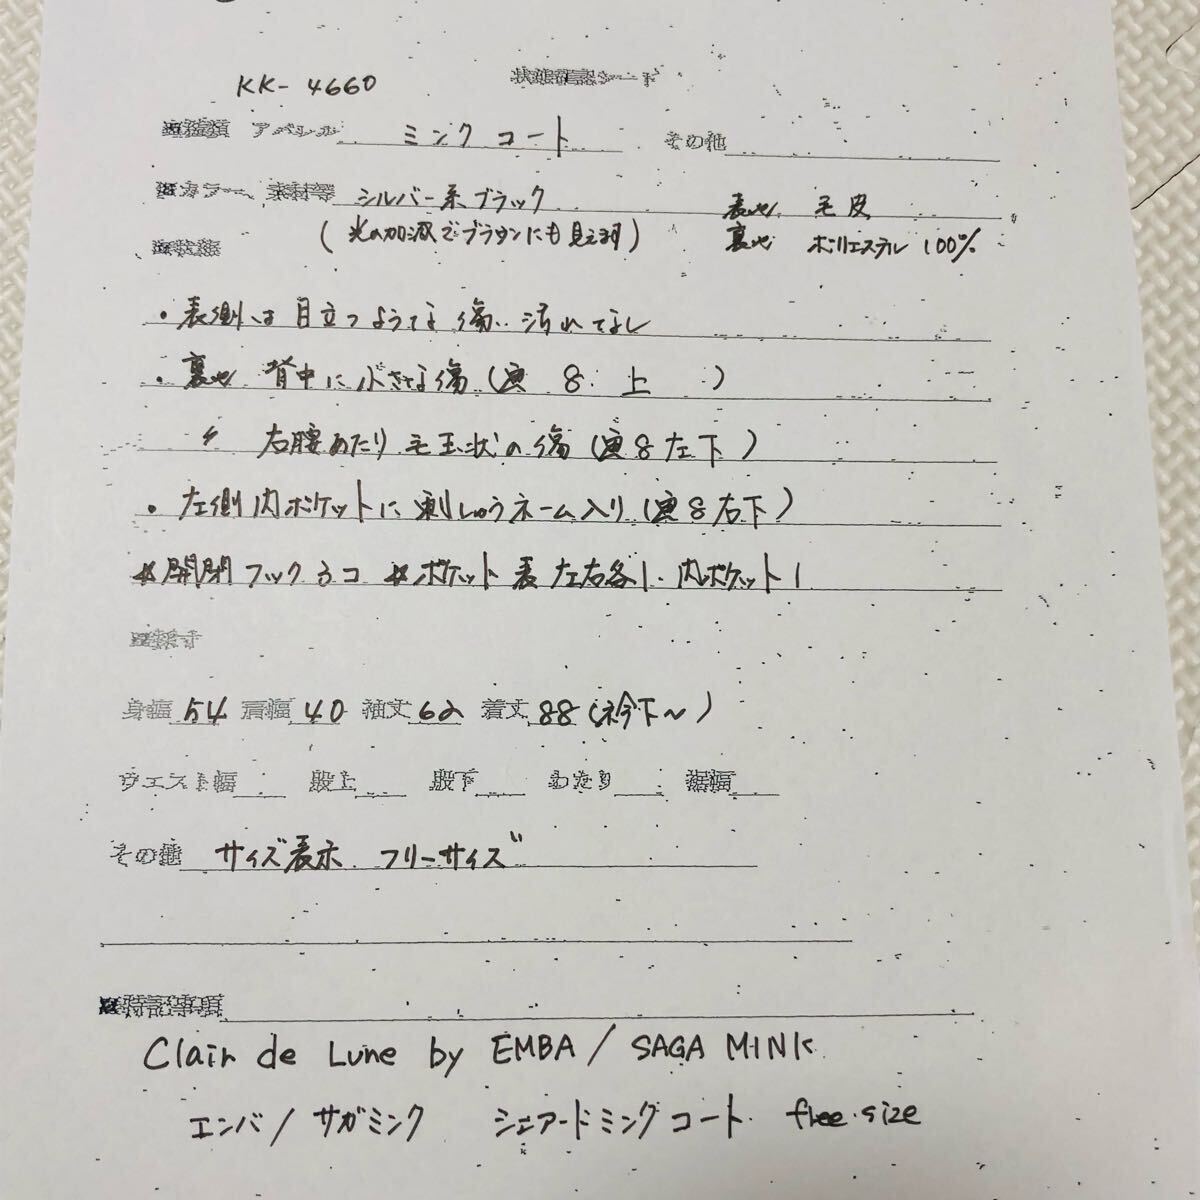 状態確認シート
KK-4660
■種類 アパレル ミンクコート その他
■カラー、素材等 シルバー系ブラック 表地 毛皮
(光の加減でブラウンにも見えます) 裏地 ポリエステル 100%
■状態
・表側は目立つような傷、汚れなし
・裏地 背中に小さな傷(画8 上 )
〃 右腰あたり毛玉状の傷(画8左下)
・左側内ポケットに刺しゅうネーム入り(画8右下)
*開閉フック3コ *ポケット表左右各1・内ポケット1
■採寸
身幅54 肩幅40 袖丈62 着丈88(衿下~)
ウエスト幅 股上 股下 わたり 裾幅
その他 サイズ表示 フリーサイズ
■特記事項
Clair de Lune by EMBA/SAGA MINK
エンバ/サガミンク シェアードミンクコート free.size